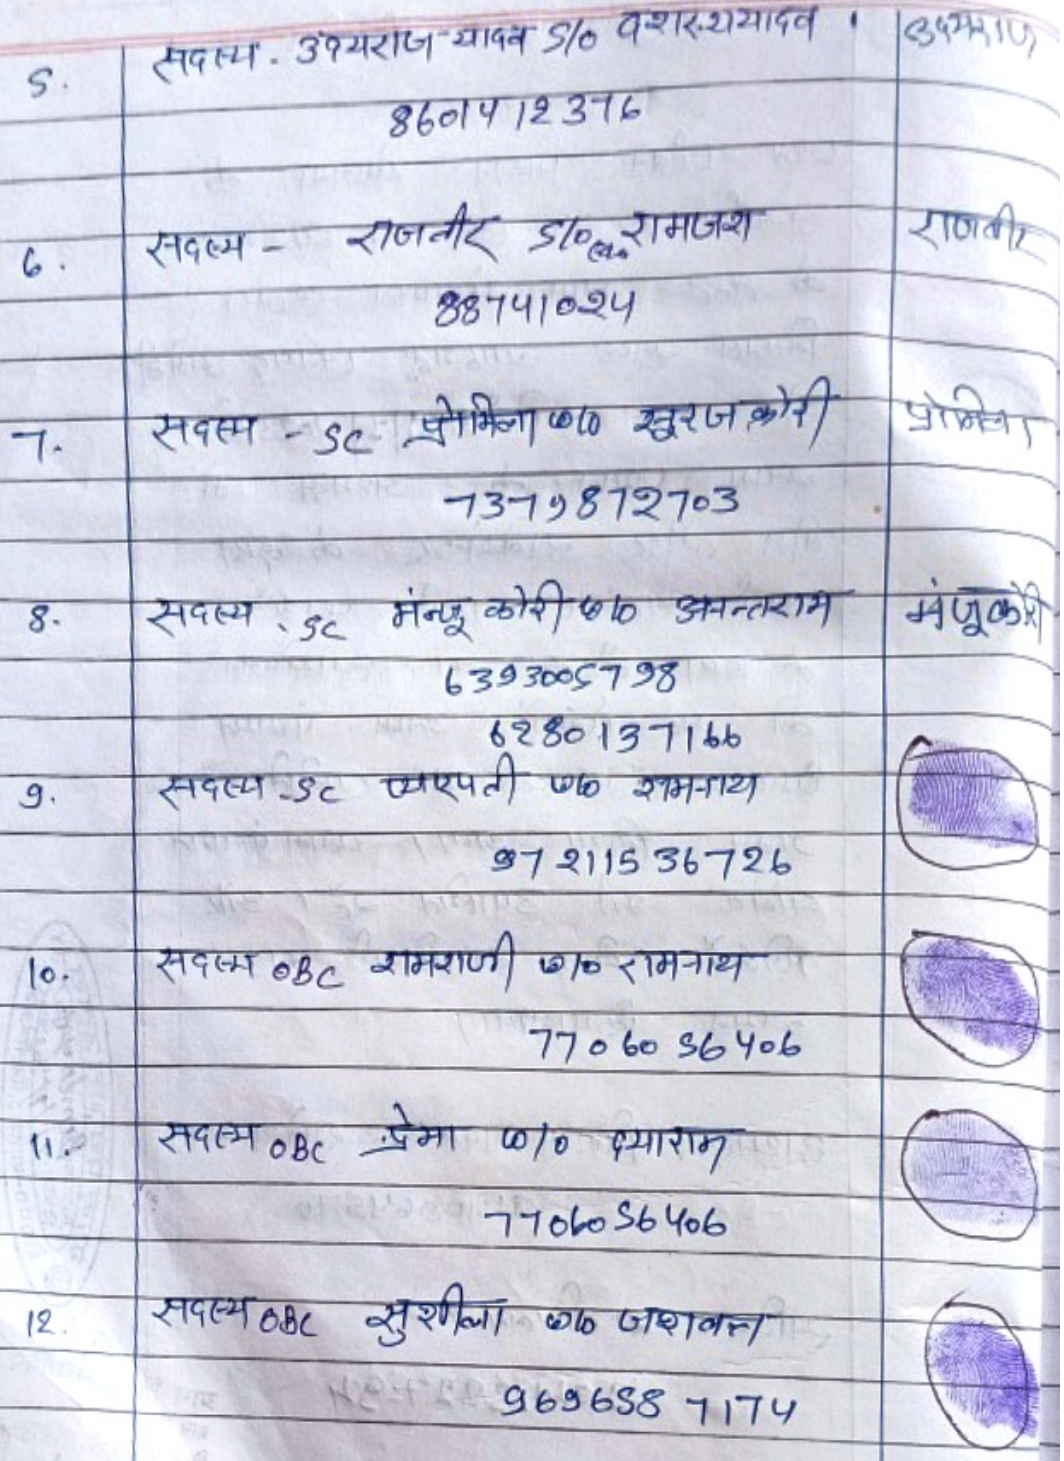 5. सदस्य. उदयराज यादव S/o दशरथ यादव उदयराज
8601412376
6. सदस्य - राजवीर S/o स्व० रामजश राजवीर
88741024
7. सदस्य - SC प्रोमिला w/o सूरज कोरी प्रोमिला
7379872703
8. सदस्य. SC मंन्जू कोरी w/o अनन्तराम मंजू कोरी
6393005798
6280137166
9. सदस्य-SC w/o रामनाथ
97211536726
10. सदस्य OBC रामराजी w/o रामनाथ
7706056406
11. सदस्य OBC प्रेमा w/o दयाराम
7706056406
12. सदस्य OBC सुशीला w/o जशवन्त
9696587174